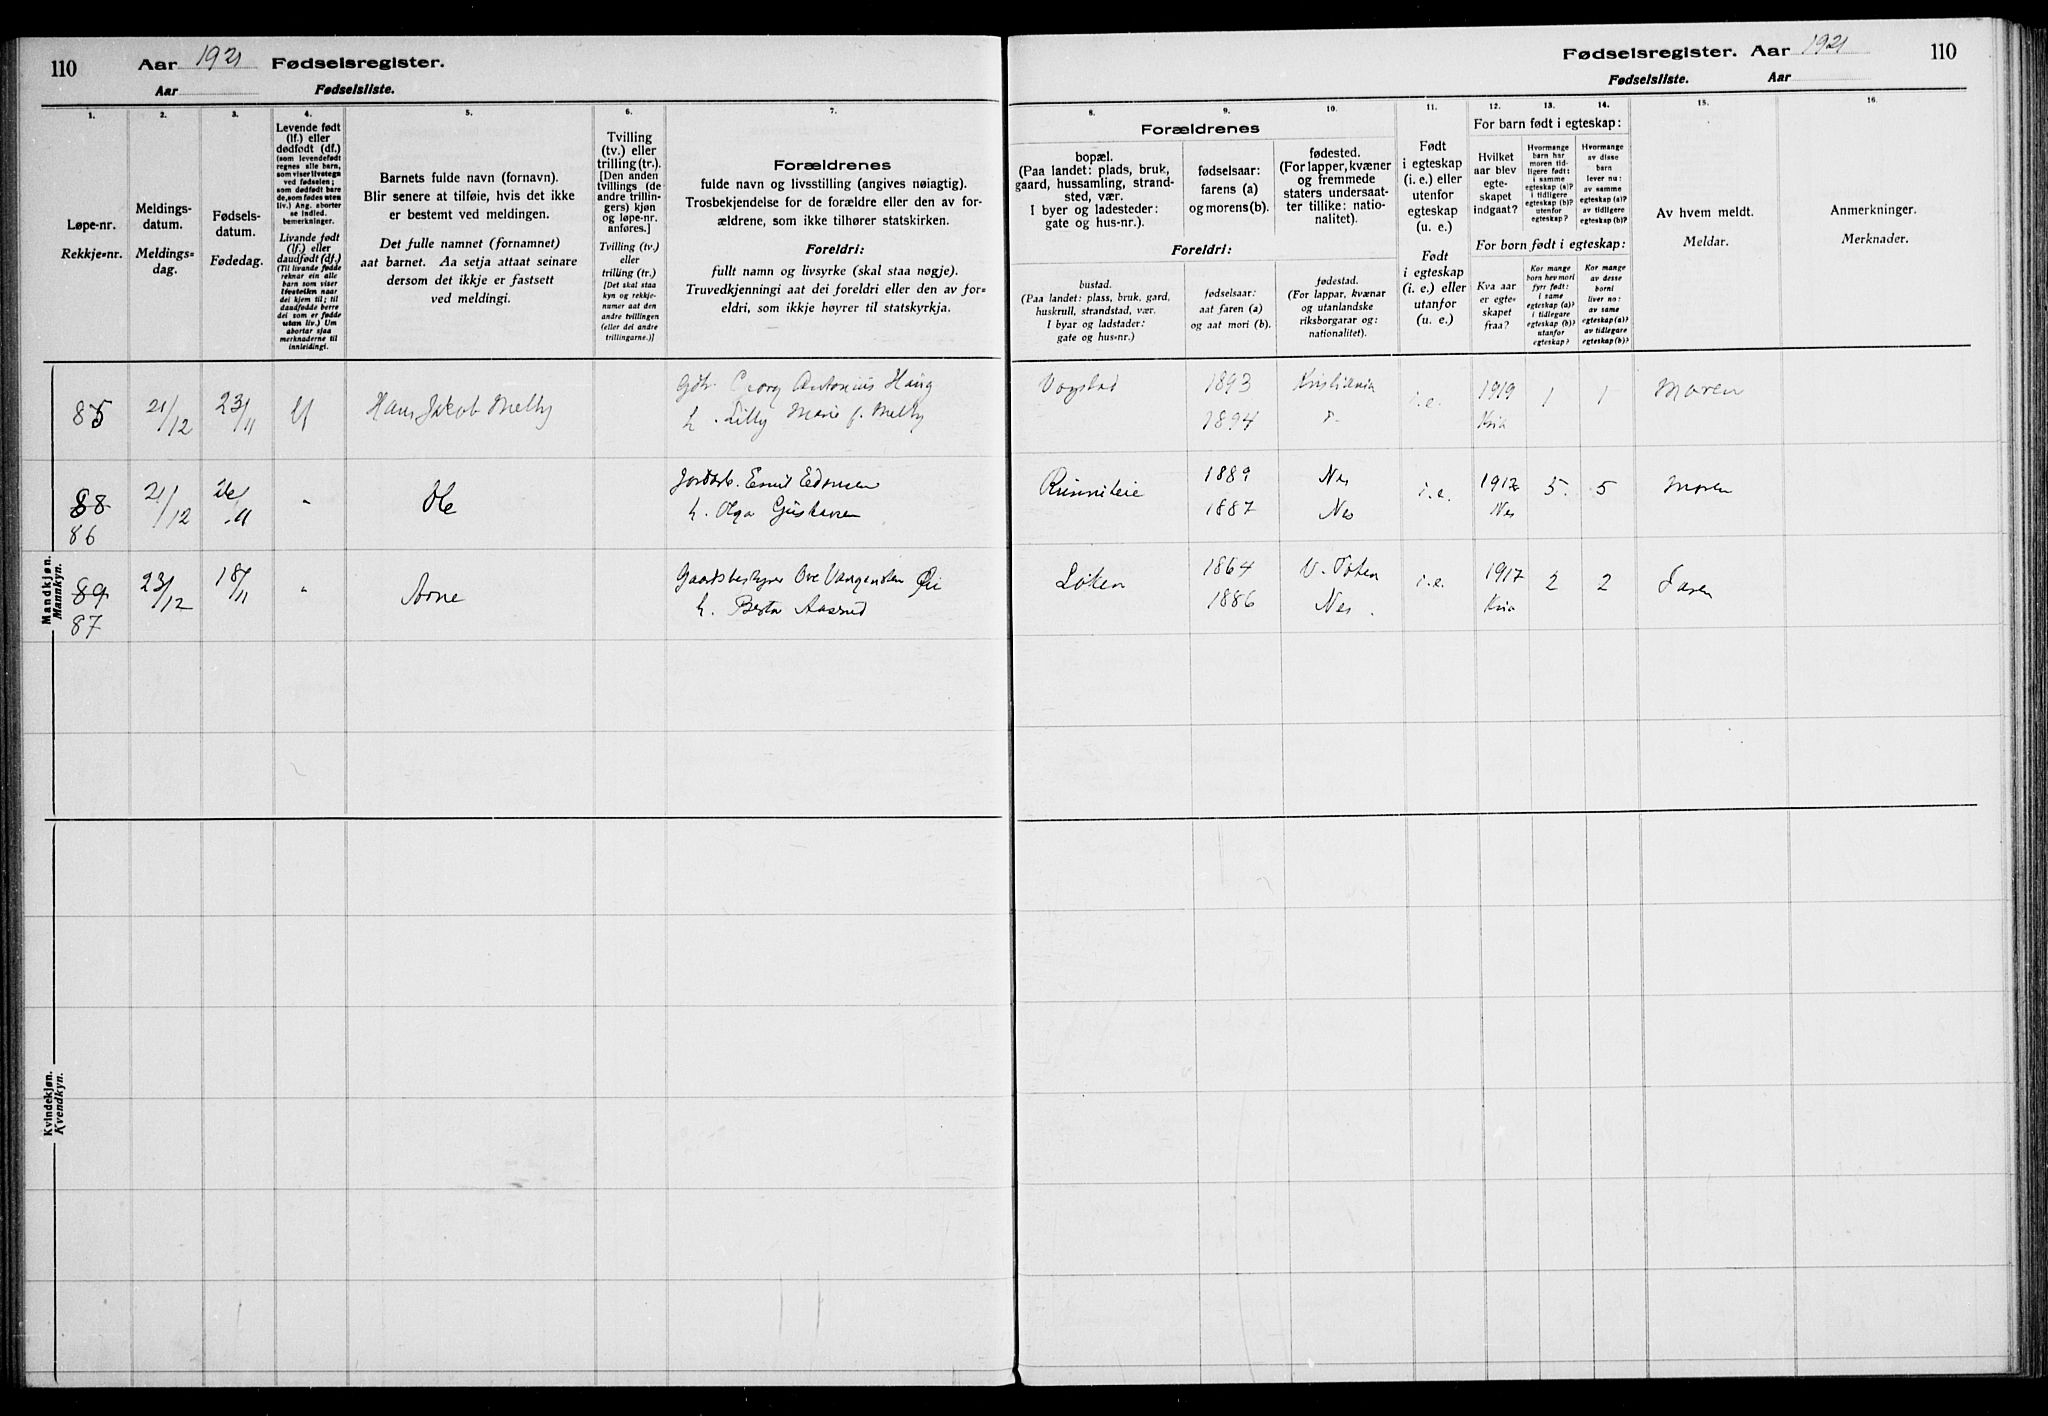 110 Aar 1921 Fødselsregister.
Aar Fødselsliste.
Fødselsregister. Aar 1921 110
Fødselsliste. Aar
1.
Løpe-nr.
Rekkje=nr.
2.
Meldings-
datum.
Meldings=
dag.
3.
Fødsels-
datum.
Fødedag.
4.
Levende født
(lf.) eller
dødfødt (df.)
(som levendefødt
regnes alle barn,
som viser livstegn
ved fødselen;
som dødfødt bare
de, som fødes uten
liv.) Ang. aborter
se indled.
bemerkninger.
Livande født
(lf.) eller
daudfødt (df.)
(Til livande fødde
reknar ein alle
barn som viser
livsteikn naar
dei kjem til; til
daudfødde berre
dei som er fødde
utan liv.) Um
abortar sjaa
merknaderne til
innleidingi.
5.
Barnets fulde navn (fornavn).
Blir senere at tilføie, hvis det ikke
er bestemt ved meldingen.
Det fulle namnet (fornamnet)
aat barnet. Aa setja attaat seinare
dersom det ikkje er fastsett
ved meldingi.
6.
Tvilling
(tv.) eller
trilling (tr.).
[Den anden
tvillings (de
andre trillin-
gers) kjøn
og løpe-nr.
anføres.]
Tvilling (tv.)
eller
trilling (tr.)
[Det skal staa
kyn og rekkje-
numer aat den
andre tvillingen
(eller dei andre
trillingarne.)]
7.
Forældrenes
fulde navn og livsstilling (angives nøiagtig).
Trosbekjendelse for de forældre eller den av for-
ældrene, som ikke tilhører statskirken.
Foreldri:
fullt namn og livsyrke (skal staa nøgje).
Truvedkjenningi aat dei foreldri eller den av for=
eldri, som ikkje høyrer til statskyrkja.
Forældrenes
8.
bopæl.
(Paa landet: plads, bruk,
gaard, hussamling, strand-
sted, vær.
I byer og ladesteder:
gate og hus-nr.).
9.
fødselsaar:
farens (a)
og morens (b).
10.
fødested.
(For lapper, kvæner
og fremmede
staters undersaat-
ter tillike: natio-
nalitet).
Foreldri:
bustad.
(Paa landet: plass, bruk, gard,
huskrull, strandstad, vær.
I byar og ladstader:
gate og hus=nr.)
fødselsaar:
aat faren (a)
og aat mori (b).
fødestad.
(For lappar, kvænar
og utanlandske
riksborgarar og:
nationalitet).
11.
Født
i egteskap
(i. e.) eller
utenfor
egteskap
(u. e.)
Født
i egteskap
(i. e.) eller
utanfor
(u. e.)
For barn født i egteskap:
12.
Hvilket
aar blev
egte-
skapet
indgaat?
13.
Hvormange
barn har
moren tid-
ligere født:
i samme
egteskap (a)?
i tidligere
egteskap (b)?
utenfor
egteskap?
14.
Hvormange
av disse
barn
lever nu:
av samme
egteskap (a)?
av tidligere
egteskap (b)?
For born født i egteskap:
Kva aar
er egte=
skapet
fraa?
Kor mange
born hev mori
fyrr født:
i same
egteskap (a)?
i tidlegare
egteskap (b)?
utanfor
egteskap?
Kor mange
av desse
borni
liver no:
av same
egteskap (a)?
av tidlegare
egteskap (b)?
15.
Av hvem meldt.
Meldar.
16.
Anmerkninger.
Merknader.
Mandkjøn.
Mannkyn.
85 21/12 23/11 lf Hans Jakob Melby Georg Antonius Haug Vogstad 1893 Kristiania i.e. 1919 1 1 Moren
h. Lilly Marie f. Melby 1894 Kria
88 21/12 Ole Emil Edvinsen 1889 Nes i.e. 1912 5 5 Moren
86 h. Olga Gustavsen 1887 Nes Nes
89 23/12 18/11 " Arne Gaardsbestyrer Ove Vangensten Øvi Løken 1864 V. Toten i.e. 1917 2 2 Faren
87 h. Berta Aasrud 1886 Nes Kria
Kvindekjøn.
Kvendkyn.